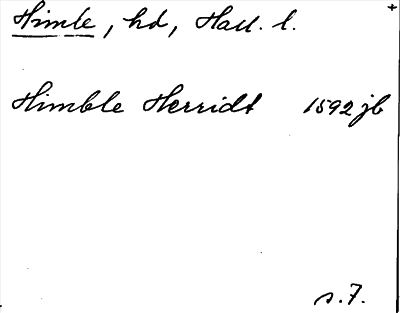 Himle, hd, Hall. l.
Himble Herridt 1592 jb
s. 7.